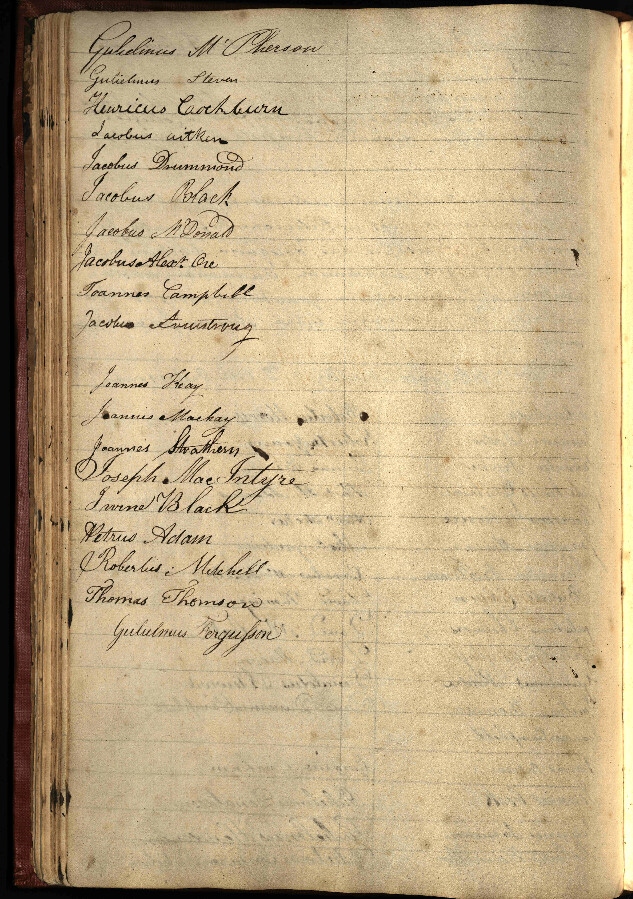 Gulielmus McPherson
Gulielmus Steven
Henricus Cockburn
Jacobus aitken
Jacobus Drummond
Jacobus Black
Jacobus McDonald
Jacobus Alexr Orr
Joannes Campbell
Jacobus Armstrong
Joannes Kay
Joannes Mackay
Joannes Strathern
Joseph MacIntyre
Irvine Black
Petrus Adam
Robertus Mitchell
Thomas Thomson
Gulielmus Fergusson